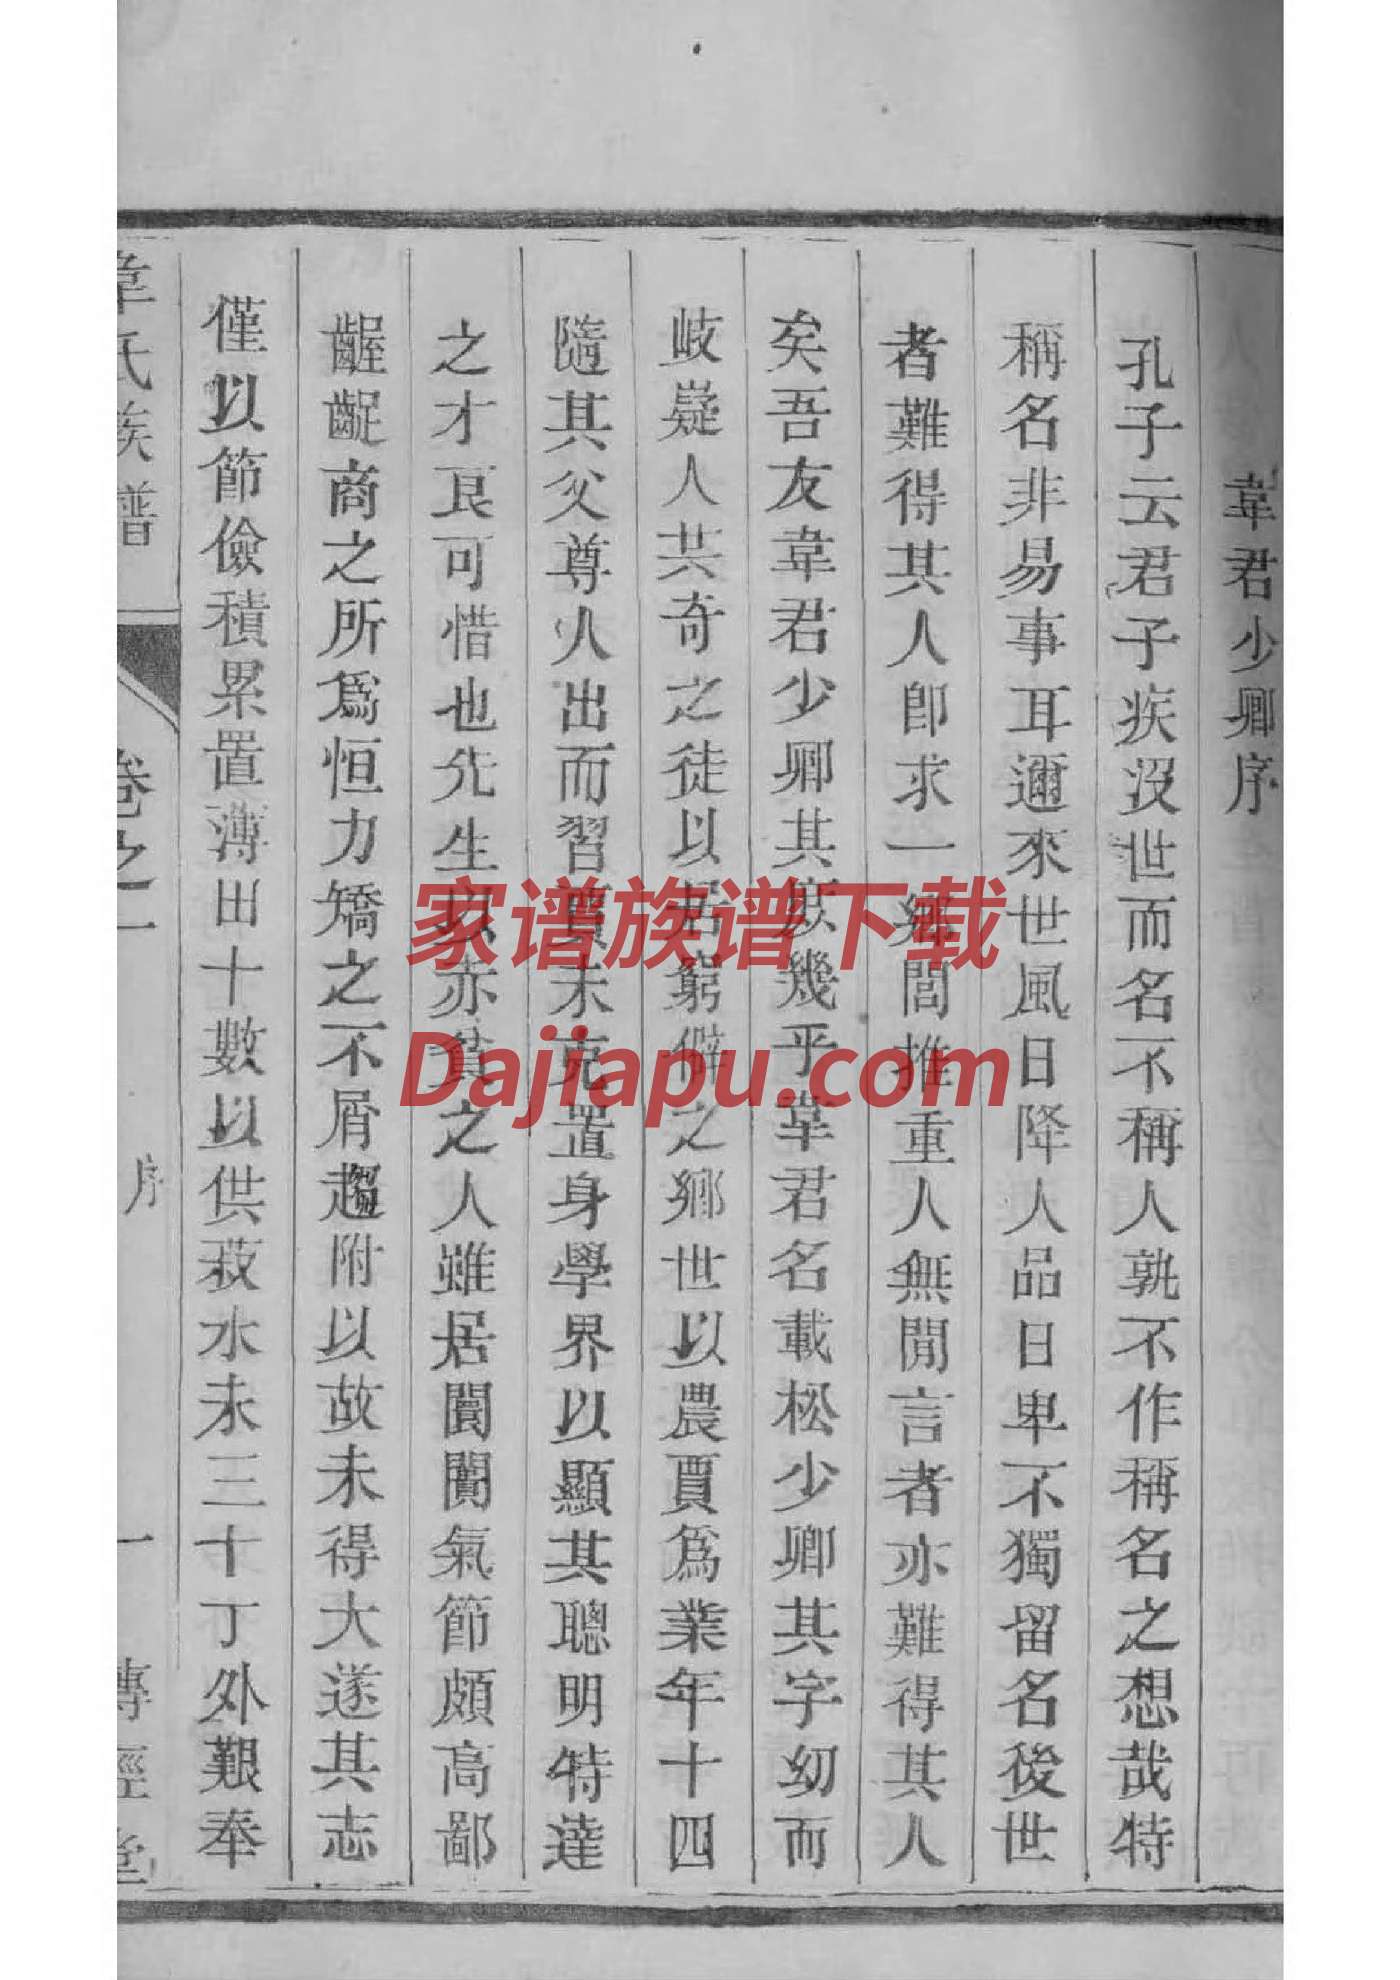 韋君少卿序
孔子云君子疾沒世而名不稱人孰不作稱名之想哉特
稱名非易事耳邇來世風日降人品日卑不獨留名後世
者難得其人卽求一鄉閭推重人無閒言者亦難得其人
矣吾友韋君少卿其庶幾乎韋君名載松少卿其字幼而
岐嶷人共奇之徒以居窮僻之鄉世以農賈爲業年十四
隨其父尊人出而習賈未克置身學界以顯其聰明特達
之才良可惜也先生以亦貧之人雖居闤闠氣節頗高鄙
齷齪商之所爲恒力矯之不屑趨附以故未得大遂其志
僅以節儉積累置薄田十數以供菽水未三十丁外艱奉
韋氏族譜
卷之一
序
一
傳經堂
家谱族谱下载
Dajiapu.com